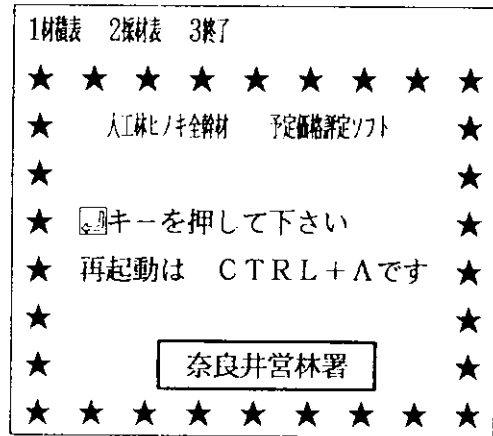 1材積表 2採材表 3終了
★ ★ ★ ★ ★ ★ ★ ★ ★
★ 人工林ヒノキ全幹材 予定価格評定ソフト ★
★ ★
★ キーを押して下さい ★
★ 再起動は CTRL+Aです ★
★ ★
★ 奈良井営林署 ★
★ ★ ★ ★ ★ ★ ★ ★ ★